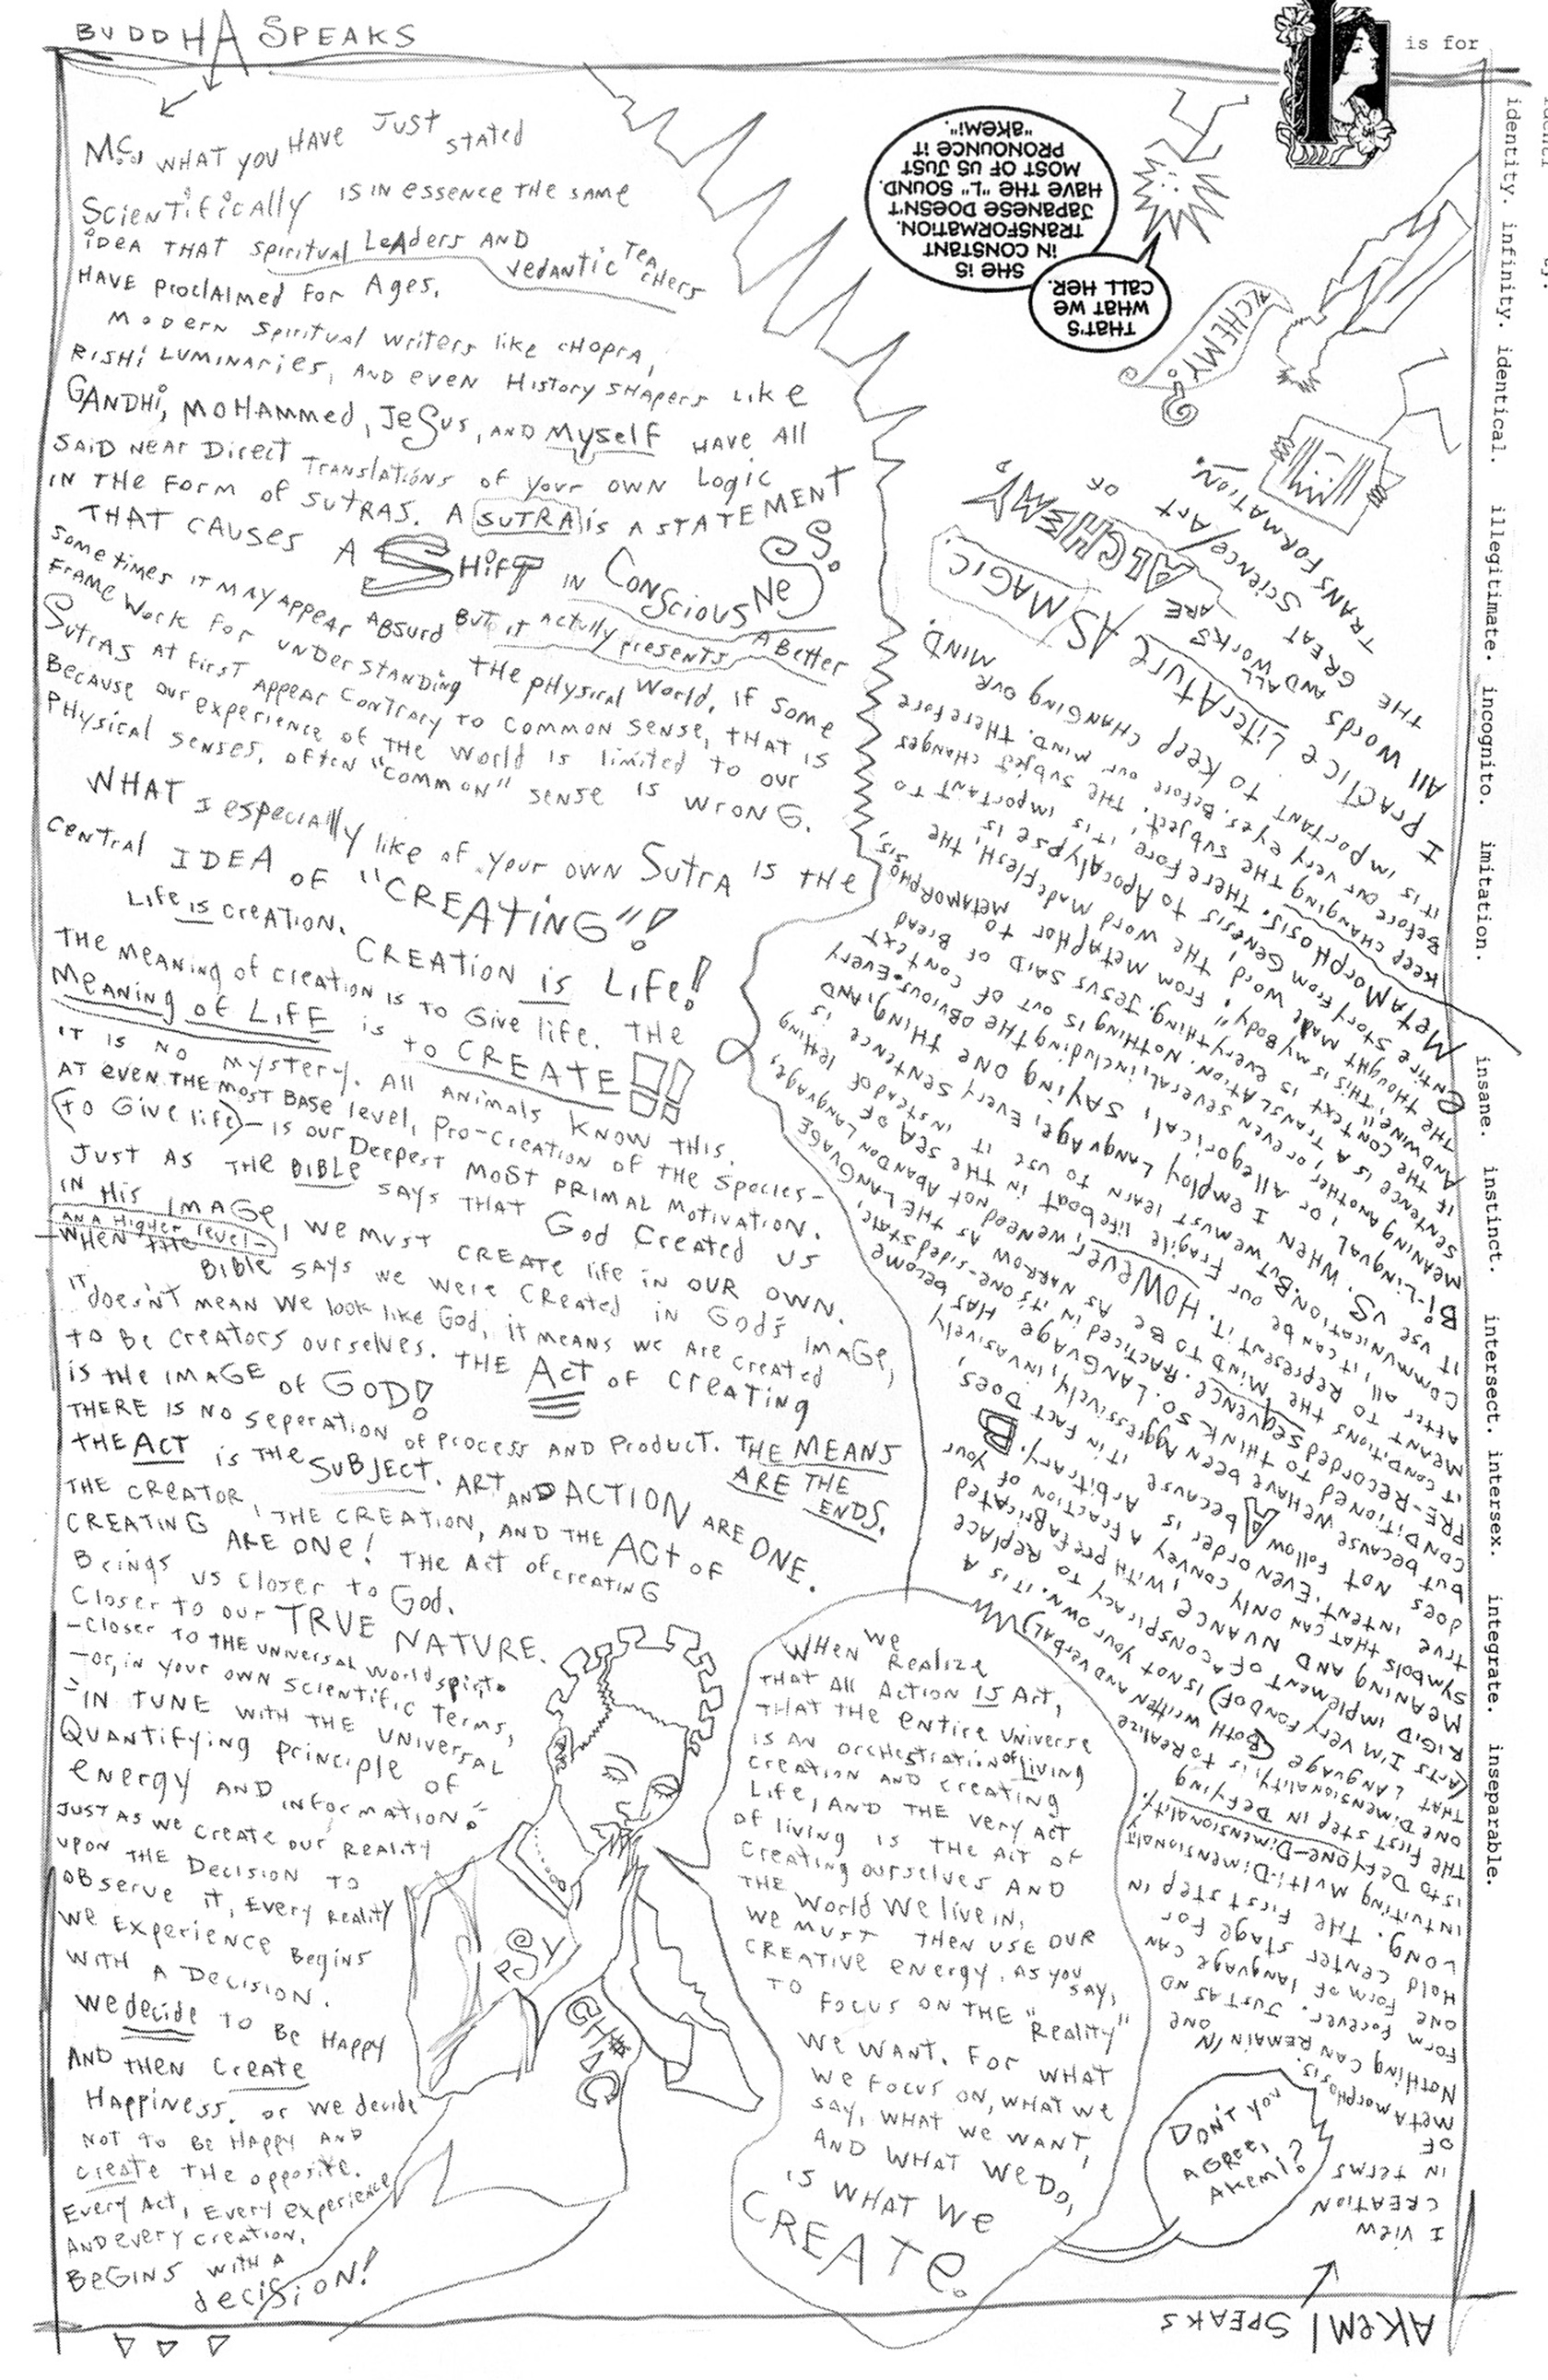 BUDDHA SPEAKS
MC, WHAT YOU HAVE JUST stated
Scientifically IS IN essence THE SAME
iDEA THAT spiritual LeADers AND
vedantic TeAcHers
HAVE proclaimed for Ages.
MODERN spiritual writers like cHOprA,
RISHi LUMINARies, AND even History SHApers Like
GANDHi, MOHAMMed, JeSus, AND Myself HAVE All
SAiD NeAr Direct TrANslAtions of your OWN Logic
IN THE form of SUTRAS. A SUTRA is A STATEMENT
THAT CAUSES A SHifT IN CONSciousNeSS.
Sometimes IT MAY AppeAr ABsurd BUT it ActUlly presents A Better
FrAMe Work For unDerstANDing THE pHysicAl World. If some
Sutras AT first AppeAr CONTrAry TO COMMON SENSE, THAT is
BecAuse our experience of THE World is limited to our
PHysicAl senses. often "COMMON" sense IS wrONG.
WHAT I especiAlly like of your OWN SutrA IS THE
CeNtrAl IDEA OF "CREATiNG"!
Life is creATiON. CREATiON is LiFe!
THE MeANiNg of creAtioN is to Give life. THE
MeANiNg of LifE is to CREATE!!
IT IS NO MYSterY. All ANiMAls KNOW THis.
AT eveN THE MOST BAse level, Pro-creAtioN of THE Species-
(to Give life)-is our Deepest MOST PRIMAL MOTIVATION.
JUST AS THE BIBLE SAYS THAT God CreAted US
IN His IMAGe, we MusT CREATE life iN OUR OWN.
-ON A HigHer level-
-WHEN THE BiBle SAYS we were CreAted iN God's IMAGe,
IT doesN'T MEAN We look like God, it MeANs we Are creAted
to Be creAtors ourselves. THE Act of creAtiNg
is tHe iMAGE of GOD!
THERE IS NO SeperAtioN of Process AND Product. THE MEANS
ARE THE
ENDS.
THE ACT is THE SUBJECT. ART AND ACTION ARE ONE.
THE CREATOR, THE CREATION, AND THE ACt OF
CREATiNG ARE ONe! THE Act of creAtiNG
BriNgs us closer to God.
Closer to our TRUE NATURE.
-Closer TO THE UNiversAl World spirit.
-or, iN your owN scieNtific terms,
-"IN TUNE WITH THE UNIVERSAL
QuANtifyiNg priNciple of
eNergy AND iNformAtioN."
JUST AS we creAte our ReAlity
upoN THE DecisioN TO
oBserve it, Every ReAlity
We Experience BegiNs
WitH A DecisioN.
We decide to Be HAppy
AND tHeN CreAte
HAppiNess. or We decide
NOT TO Be HAppy AND
creAte THE opposite.
Every Act, Every experieNce
AND every creAtioN,
BeGiNs WitH A
decisiON!
PSY
GH#DC
WHEN we ReAlize
THAT All ActioN IS Art,
THAT THE eNtire UNiverse
IS AN orcHestrAtioN of LiviNg
CreAtioN AND creAtiNg
Life, AND THE very Act
of liviNg is THE Act of
CreAtiNg ourselves AND
THE World We live iN,
We MUST THEN use our
CREATive eNergy, AS you SAY,
TO focus oN THE "ReAlity"
We WANT. FOR WHAT
We focus oN, WHAT we
SAY, WHAT we WANT,
AND WHAT We DO,
is WHAT We
CREATE.
DON'T YOU
AGREE,
AKEMI?
AKEMI SPEAKS
I view
CREATION
IN TerMs
OF
MetAMorpHosis.
NotHiNg CAN REMAIN IN ONE
form forever. JUST AS NO
ONE form of lANguAge CAN
Hold ceNter stAge for
LONG. THE first step iN
iNtuitiNg Multi-DimeNsioNAlity
is to Defy oNe-DimeNsioNAlity.
THE first step iN DefyiNg
oNe DimeNsioNAlity, is to ReAlize
THAT LANguAge (BotH writteN AND verBAl)
(Arts I'M very foND of) is Not your owN. it is A
RIGID implemeNt of A coNspirAcy to RepLAce
MeANiNg AND NUANCE, WitH prefABricAted
symBols tHAt cAN oNly coNvey A frActioN of your
true iNteNt. EveN order is ArBitrAry. B
Does Not follow A BecAuse it iN fAct Does,
But BecAuse we HAve BeeN AggressiveLy, iNvAsively
CONDitioNed to tHiNk so. LANGUAGE HAS Become
PRE-Recorded sequeNce. PrActiced iN it's oNe-sided stAte,
it coNditioNs tHe MiND to Be As NArrow As tHe LANGUAGE
MeANt to RepreseNt it. However, we Need Not ABANDON LANguAge,
After All, it cAN Be our FrAgile lifeBoAt iN tHe SEA of
CommuNicAtioN. But we must leArN to use it iNsteAd of lettiNg
it use US. WHEN I employ LANguAge, Every seNteNce is
Bi-LiNguAl, or AllegoricAl, SAYiNG oNe tHiNg, AND
MeANiNg ANotHer, or eveN severAl, iNcludiNg tHe oBvious. Every
seNteNce is A TrANslAtioN. NotHiNg is out of coNtext
if tHe coNtext is everytHiNg. Jesus SAID of BreAD
AND wiNe, "THis is my Body". From MetApHor to MetAmorpHosis,
THE tHougHt MADe Word, THE Word MADe FlesH, THE
eNtire story from GeNesis to ApocAlypse is
MetAMorpHosis. THerefore it is importANt to
keep cHANgiNg tHe suBject. THE suBject cHANges
Before our very eyes. Before our MiND. THerefore
it is importANt to keep cHANgiNg our MiND.
I PrActice LiterAture AS MAGIC
All words AND All works ARE ALCHEMY,
THE GREAT Science/Art of
TRANSFORMATION.
ALCHEMY?
THAT'S
WHAT WE
CALL HER.
SHE IS
IN CONSTANT
TRANSFORMATION.
JAPANESE DOESN'T
HAVE THE "L" SOUND.
MOST OF US JUST
PRONOUNCE IT
"AKEMI".
I is for
identity. infinity. identical. illegitimate. incognito. imitation. insane. instinct. intersect. intersex. integrate. inseparable.